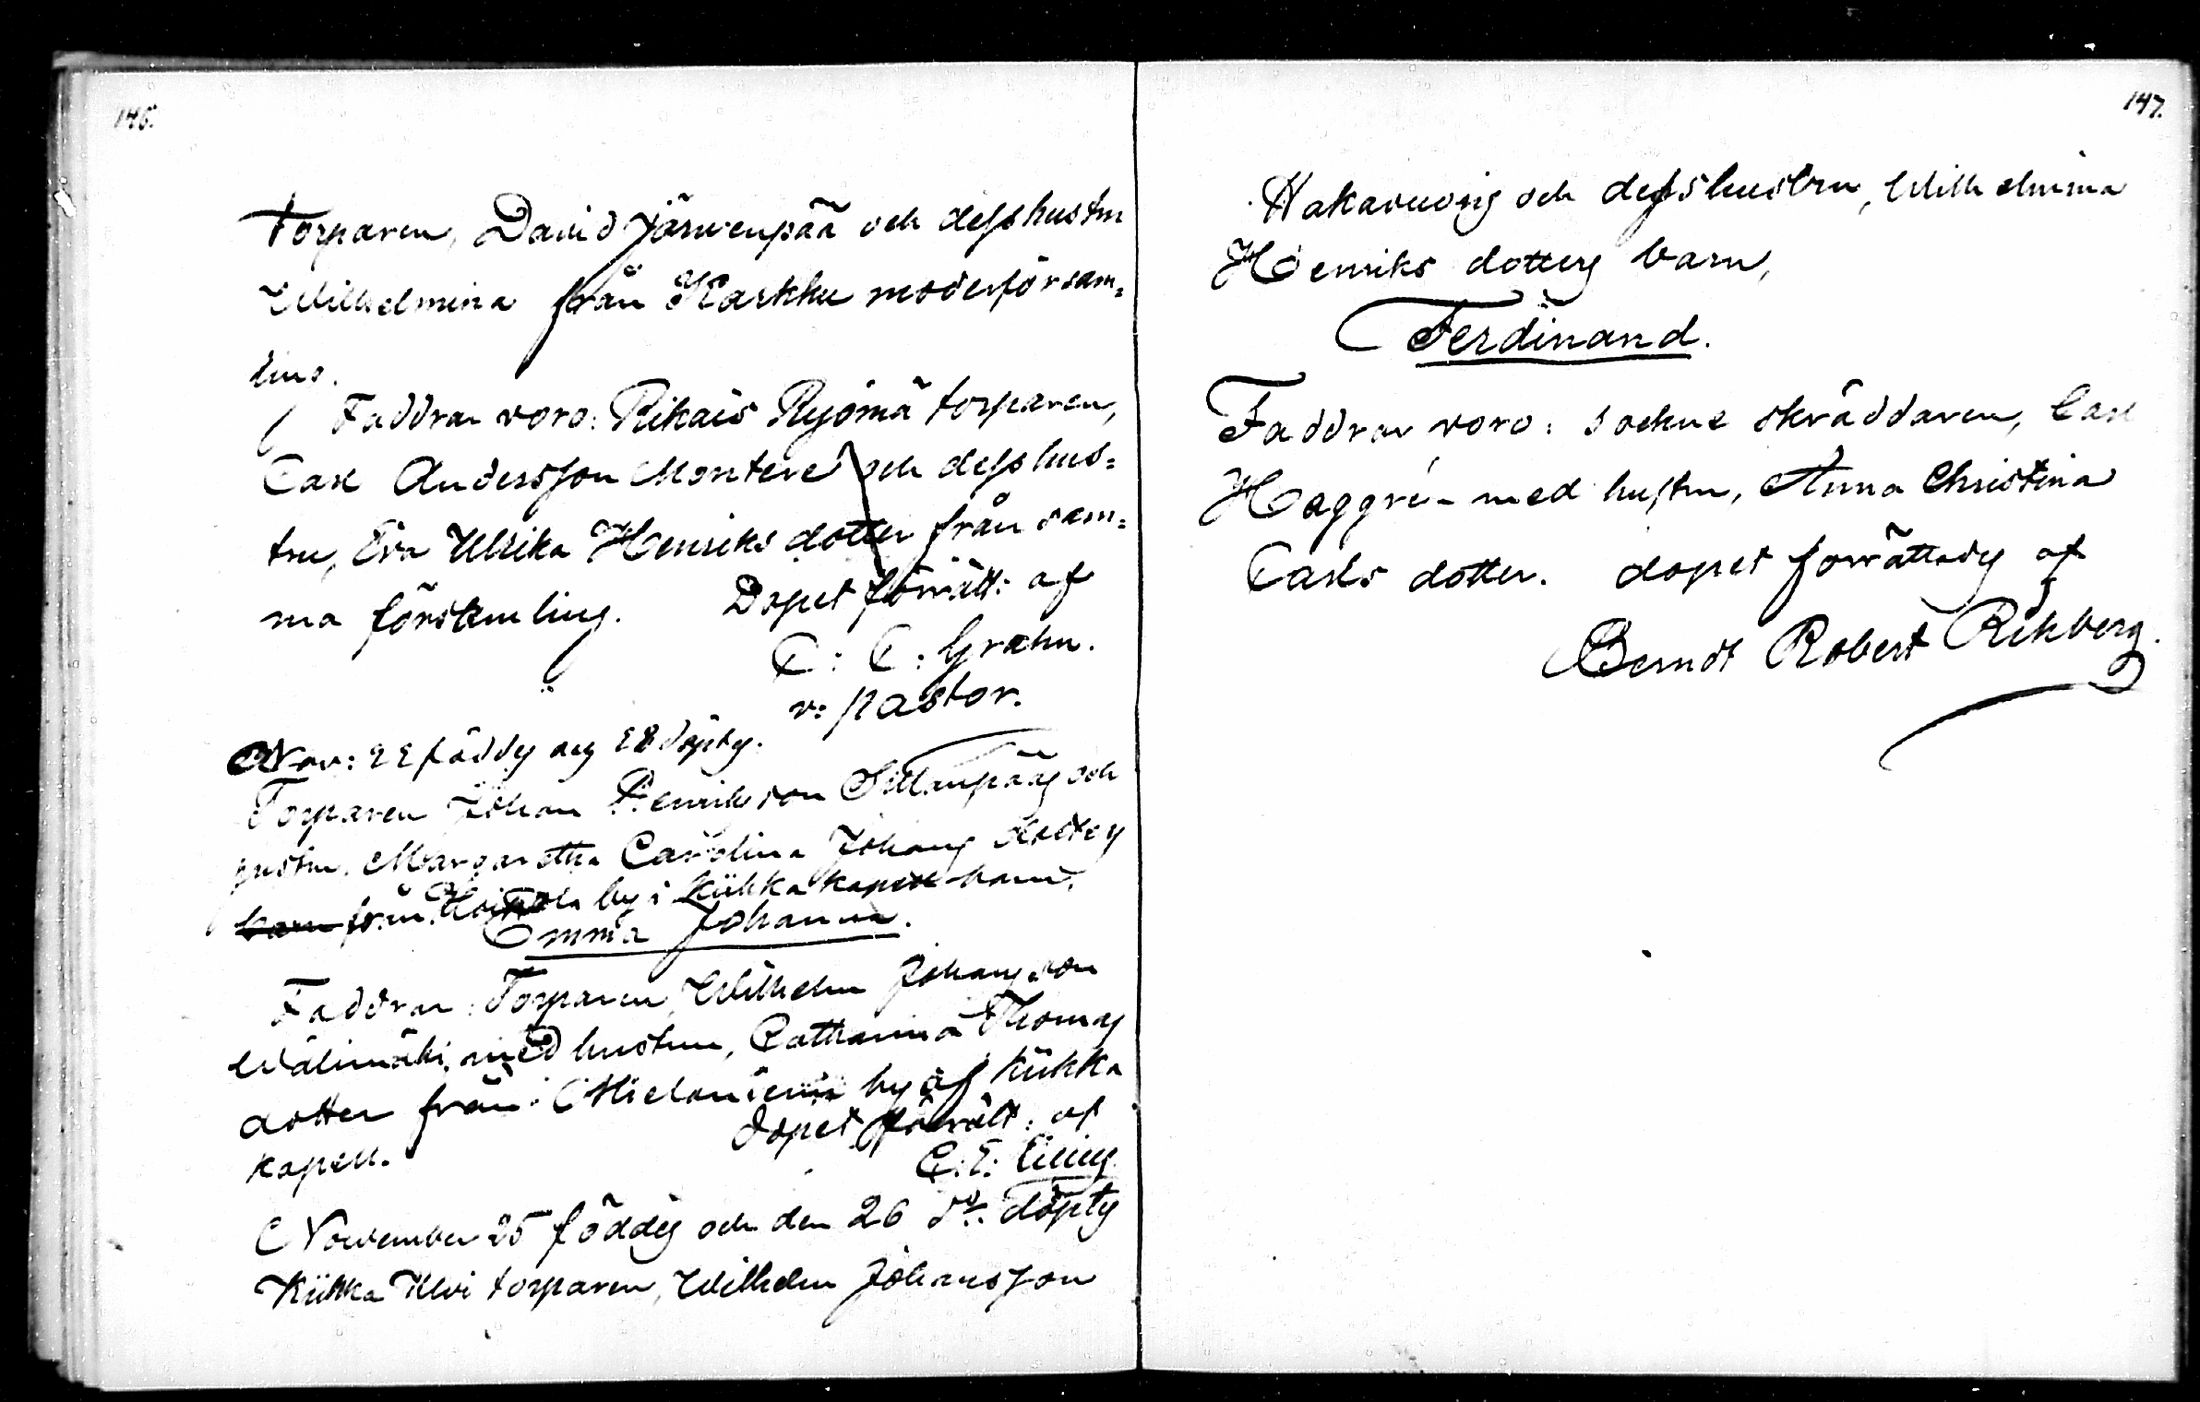 146.
Torparen, David Järwenpää och dess hustru
Wilhelmina från Karkku moderförsam=
ling.
Faddrar voro: Rikais Ryömä torparen,
Carl Andersson Montere och dess hus=
tru, Eva Ulrika Henriks dotter från sam=
ma försämling. Dopet förrätt: af
C: C: Grahn.
v: pastor.
Nov: 22 föddes och 28 döptes.
Torparen Johan Henrikson Sillanpääs och
hustru Margaretha Carolina Johans dotters
barn från by i Kiikka kapell barn,
Emma Johanna.
Faddrar: Torparen, Wilhelm Johansson
Wälimäki med hustru, Catharina Thomas
dotter från by af Kiikka
kapell. dopet förrätt: af
C: E:
November 25 föddes och den 26 do. döptes
Kiikka Ulvi torparen, Wilhelm Johansson
147.
och dess hustru, Wilhelmina
Henriks dotters barn,
Ferdinand.
Faddrar voro: sockne skräddaren, Carl
Haggrén med hustru, Anna Christina
Carls dotter. dopet förrättades af
Berndt Robert Rikberg.